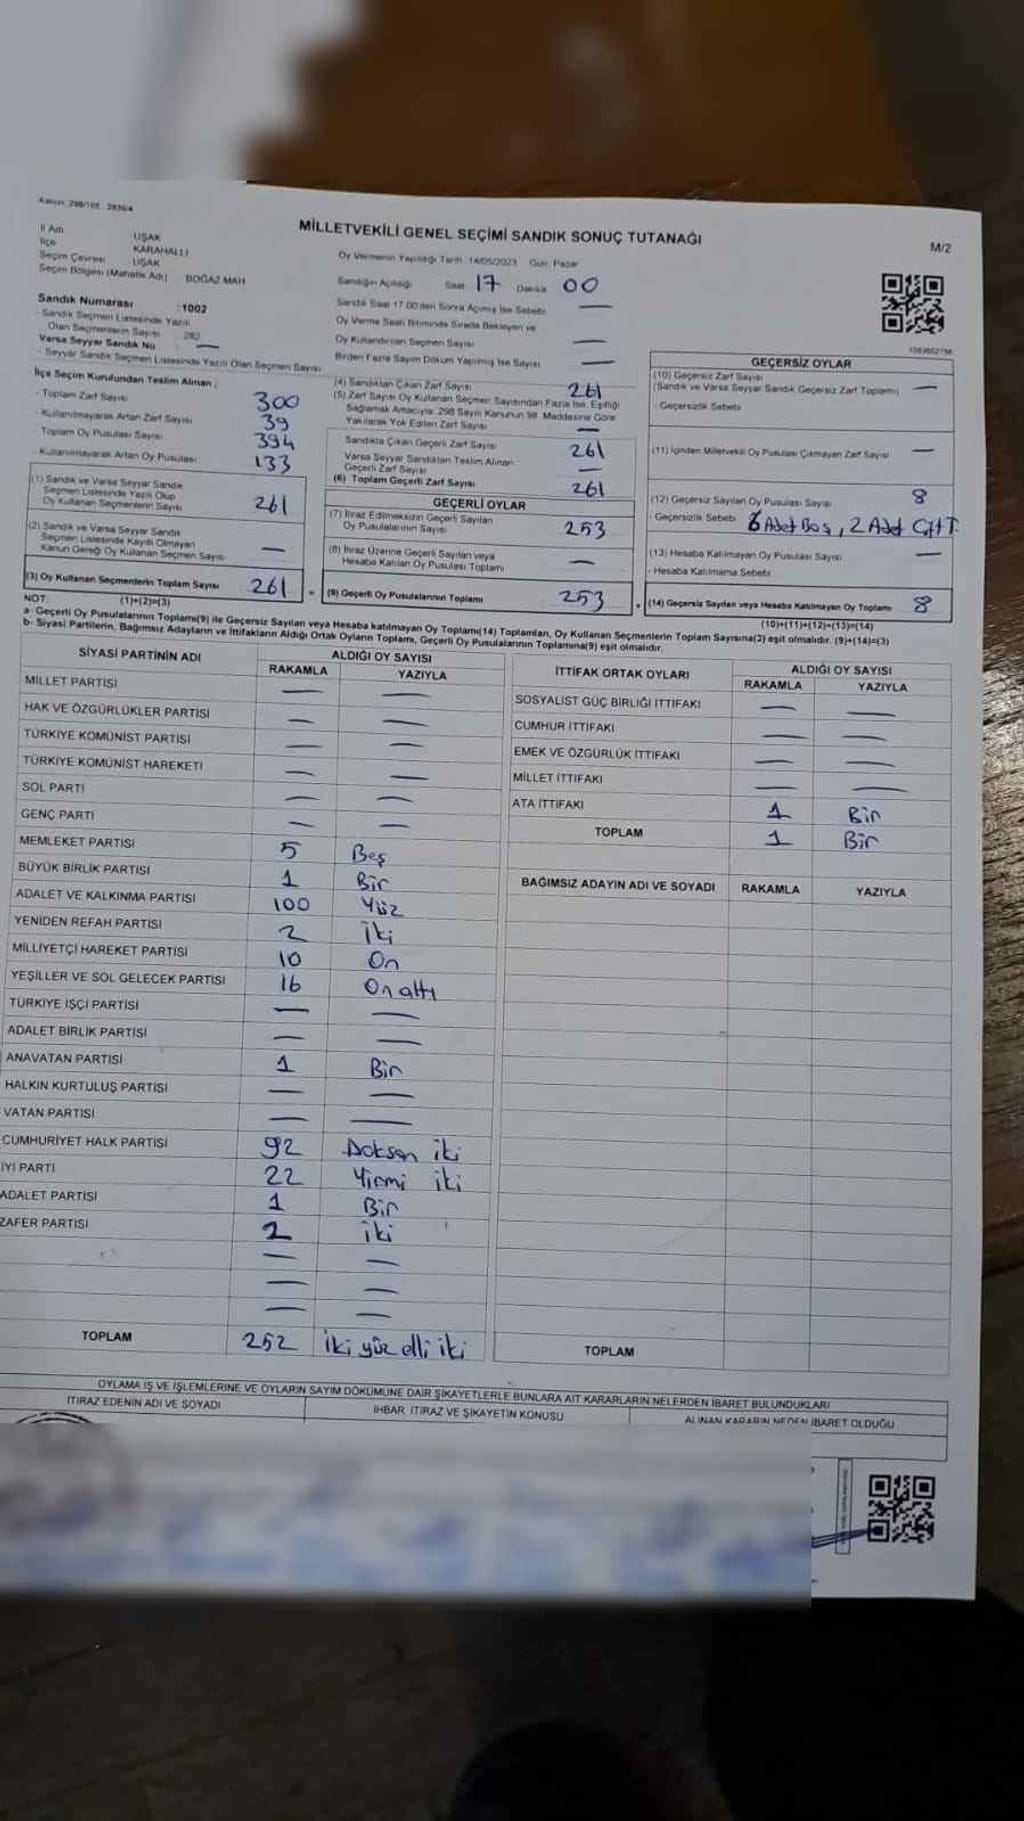 Kanun: 298/105 - 2839/4
MİLLETVEKİLİ GENEL SEÇİMİ SANDIK SONUÇ TUTANAĞI
M/2
İl Adı UŞAK
İlçe KARAHALLI
Seçim Çevresi UŞAK
Seçim Bölgesi (Mahalle Adı) BOĞAZ MAH
Sandık Numarası :1002
- Sandık Seçmen Listesinde Yazılı
Olan Seçmenlerin Sayısı 282
Varsa Seyyar Sandık No —
- Seyyar Sandık Seçmen Listesinde Yazılı Olan Seçmen Sayısı
Oy Vermenin Yapıldığı Tarih 14/05/2023 Gün: Pazar
Sandığın Açıldığı Saat 17 Dakika 00
Sandık Saat 17.00'den Sonra Açılmış İse Sebebi —
Oy Verme Saati Bitiminde Sırada Bekleyen ve
Oy Kullandırılan Seçmen Sayısı —
Birden Fazla Sayım Döküm Yapılmış İse Sayısı —
İlçe Seçim Kurulundan Teslim Alınan ;
- Toplam Zarf Sayısı 300
- Kullanılmayarak Artan Zarf Sayısı 39
- Toplam Oy Pusulası Sayısı 394
- Kullanılmayarak Artan Oy Pusulası 133
(1) Sandık ve Varsa Seyyar Sandık
Seçmen Listesinde Yazılı Olup
Oy Kullanan Seçmenlerin Sayısı 261
(2) Sandık ve Varsa Seyyar Sandık
Seçmen Listesinde Kayıtlı Olmayan
Kanun Gereği Oy Kullanan Seçmen Sayısı —
(3) Oy Kullanan Seçmenlerin Toplam Sayısı 261
(1)+(2)=(3)
(4) Sandıktan Çıkan Zarf Sayısı 261
(5) Zarf Sayısı Oy Kullanan Seçmen Sayısından Fazla İse, Eşitliği
Sağlamak Amacıyla, 298 Sayılı Kanunun 98. Maddesine Göre
Yakılarak Yok Edilen Zarf Sayısı —
Sandıkta Çıkan Geçerli Zarf Sayısı 261
Varsa Seyyar Sandıktan Teslim Alınan
Geçerli Zarf Sayısı —
(6) Toplam Geçerli Zarf Sayısı 261
GEÇERLİ OYLAR
(7) İtiraz Edilmeksizin Geçerli Sayılan
Oy Pusulalarının Sayısı 253
(8) İtiraz Üzerine Geçerli Sayılan veya
Hesaba Katılan Oy Pusulası Toplamı —
= (9) Geçerli Oy Pusulalarının Toplamı 253
GEÇERSİZ OYLAR
(10) Geçersiz Zarf Sayısı
(Sandık ve Varsa Seyyar Sandık Geçersiz Zarf Toplamı) —
- Geçersizlik Sebebi
(11) İçinden Milletvekili Oy Pusulası Çıkmayan Zarf Sayısı —
(12) Geçersiz Sayılan Oy Pusulası Sayısı 8
- Geçersizlik Sebebi 6 Adet Boş, 2 Adet Çift T.
(13) Hesaba Katılmayan Oy Pusulası Sayısı —
- Hesaba Katılmama Sebebi
+ (14) Geçersiz Sayılan veya Hesaba Katılmayan Oy Toplamı 8
(10)+(11)+(12)+(13)=(14)
NOT:
a- Geçerli Oy Pusulalarının Toplamı(9) ile Geçersiz Sayılan veya Hesaba katılmayan Oy Toplamı(14) Toplamları, Oy Kullanan Seçmenlerin Toplam Sayısına(3) eşit olmalıdır. (9)+(14)=(3)
b- Siyasi Partilerin, Bağımsız Adayların ve İttifakların Aldığı Ortak Oyların Toplamı, Geçerli Oy Pusulalarının Toplamına(9) eşit olmalıdır.
SİYASİ PARTİNİN ADI ALDIĞI OY SAYISI
RAKAMLA YAZIYLA
MİLLET PARTİSİ — —
HAK VE ÖZGÜRLÜKLER PARTİSİ — —
TÜRKİYE KOMÜNİST PARTİSİ — —
TÜRKİYE KOMÜNİST HAREKETİ — —
SOL PARTİ — —
GENÇ PARTİ — —
MEMLEKET PARTİSİ 5 Beş
BÜYÜK BİRLİK PARTİSİ 1 Bir
ADALET VE KALKINMA PARTİSİ 100 Yüz
YENİDEN REFAH PARTİSİ 2 İki
MİLLİYETÇİ HAREKET PARTİSİ 10 On
YEŞİLLER VE SOL GELECEK PARTİSİ 16 On altı
TÜRKİYE İŞÇİ PARTİSİ — —
ADALET BİRLİK PARTİSİ — —
ANAVATAN PARTİSİ 1 Bir
HALKIN KURTULUŞ PARTİSİ — —
VATAN PARTİSİ — —
CUMHURİYET HALK PARTİSİ 92 Doksan iki
İYİ PARTİ 22 Yirmi iki
ADALET PARTİSİ 1 Bir
ZAFER PARTİSİ 2 iki
— —
— —
— —
TOPLAM 252 İki yüz elli iki
İTTİFAK ORTAK OYLARI ALDIĞI OY SAYISI
RAKAMLA YAZIYLA
SOSYALİST GÜÇ BİRLİĞİ İTTİFAKI — —
CUMHUR İTTİFAKI — —
EMEK VE ÖZGÜRLÜK İTTİFAKI — —
MİLLET İTTİFAKI — —
ATA İTTİFAKI 1 Bir
TOPLAM 1 Bir
BAĞIMSIZ ADAYIN ADI VE SOYADI RAKAMLA YAZIYLA
TOPLAM
OYLAMA İŞ VE İŞLEMLERİNE VE OYLARIN SAYIM DÖKÜMÜNE DAİR ŞİKAYETLERLE BUNLARA AİT KARARLARIN NELERDEN İBARET BULUNDUKLARI
İTİRAZ EDENİN ADI VE SOYADI İHBAR, İTİRAZ VE ŞİKAYETİN KONUSU ALINAN KARARIN NEDEN İBARET OLDUĞU